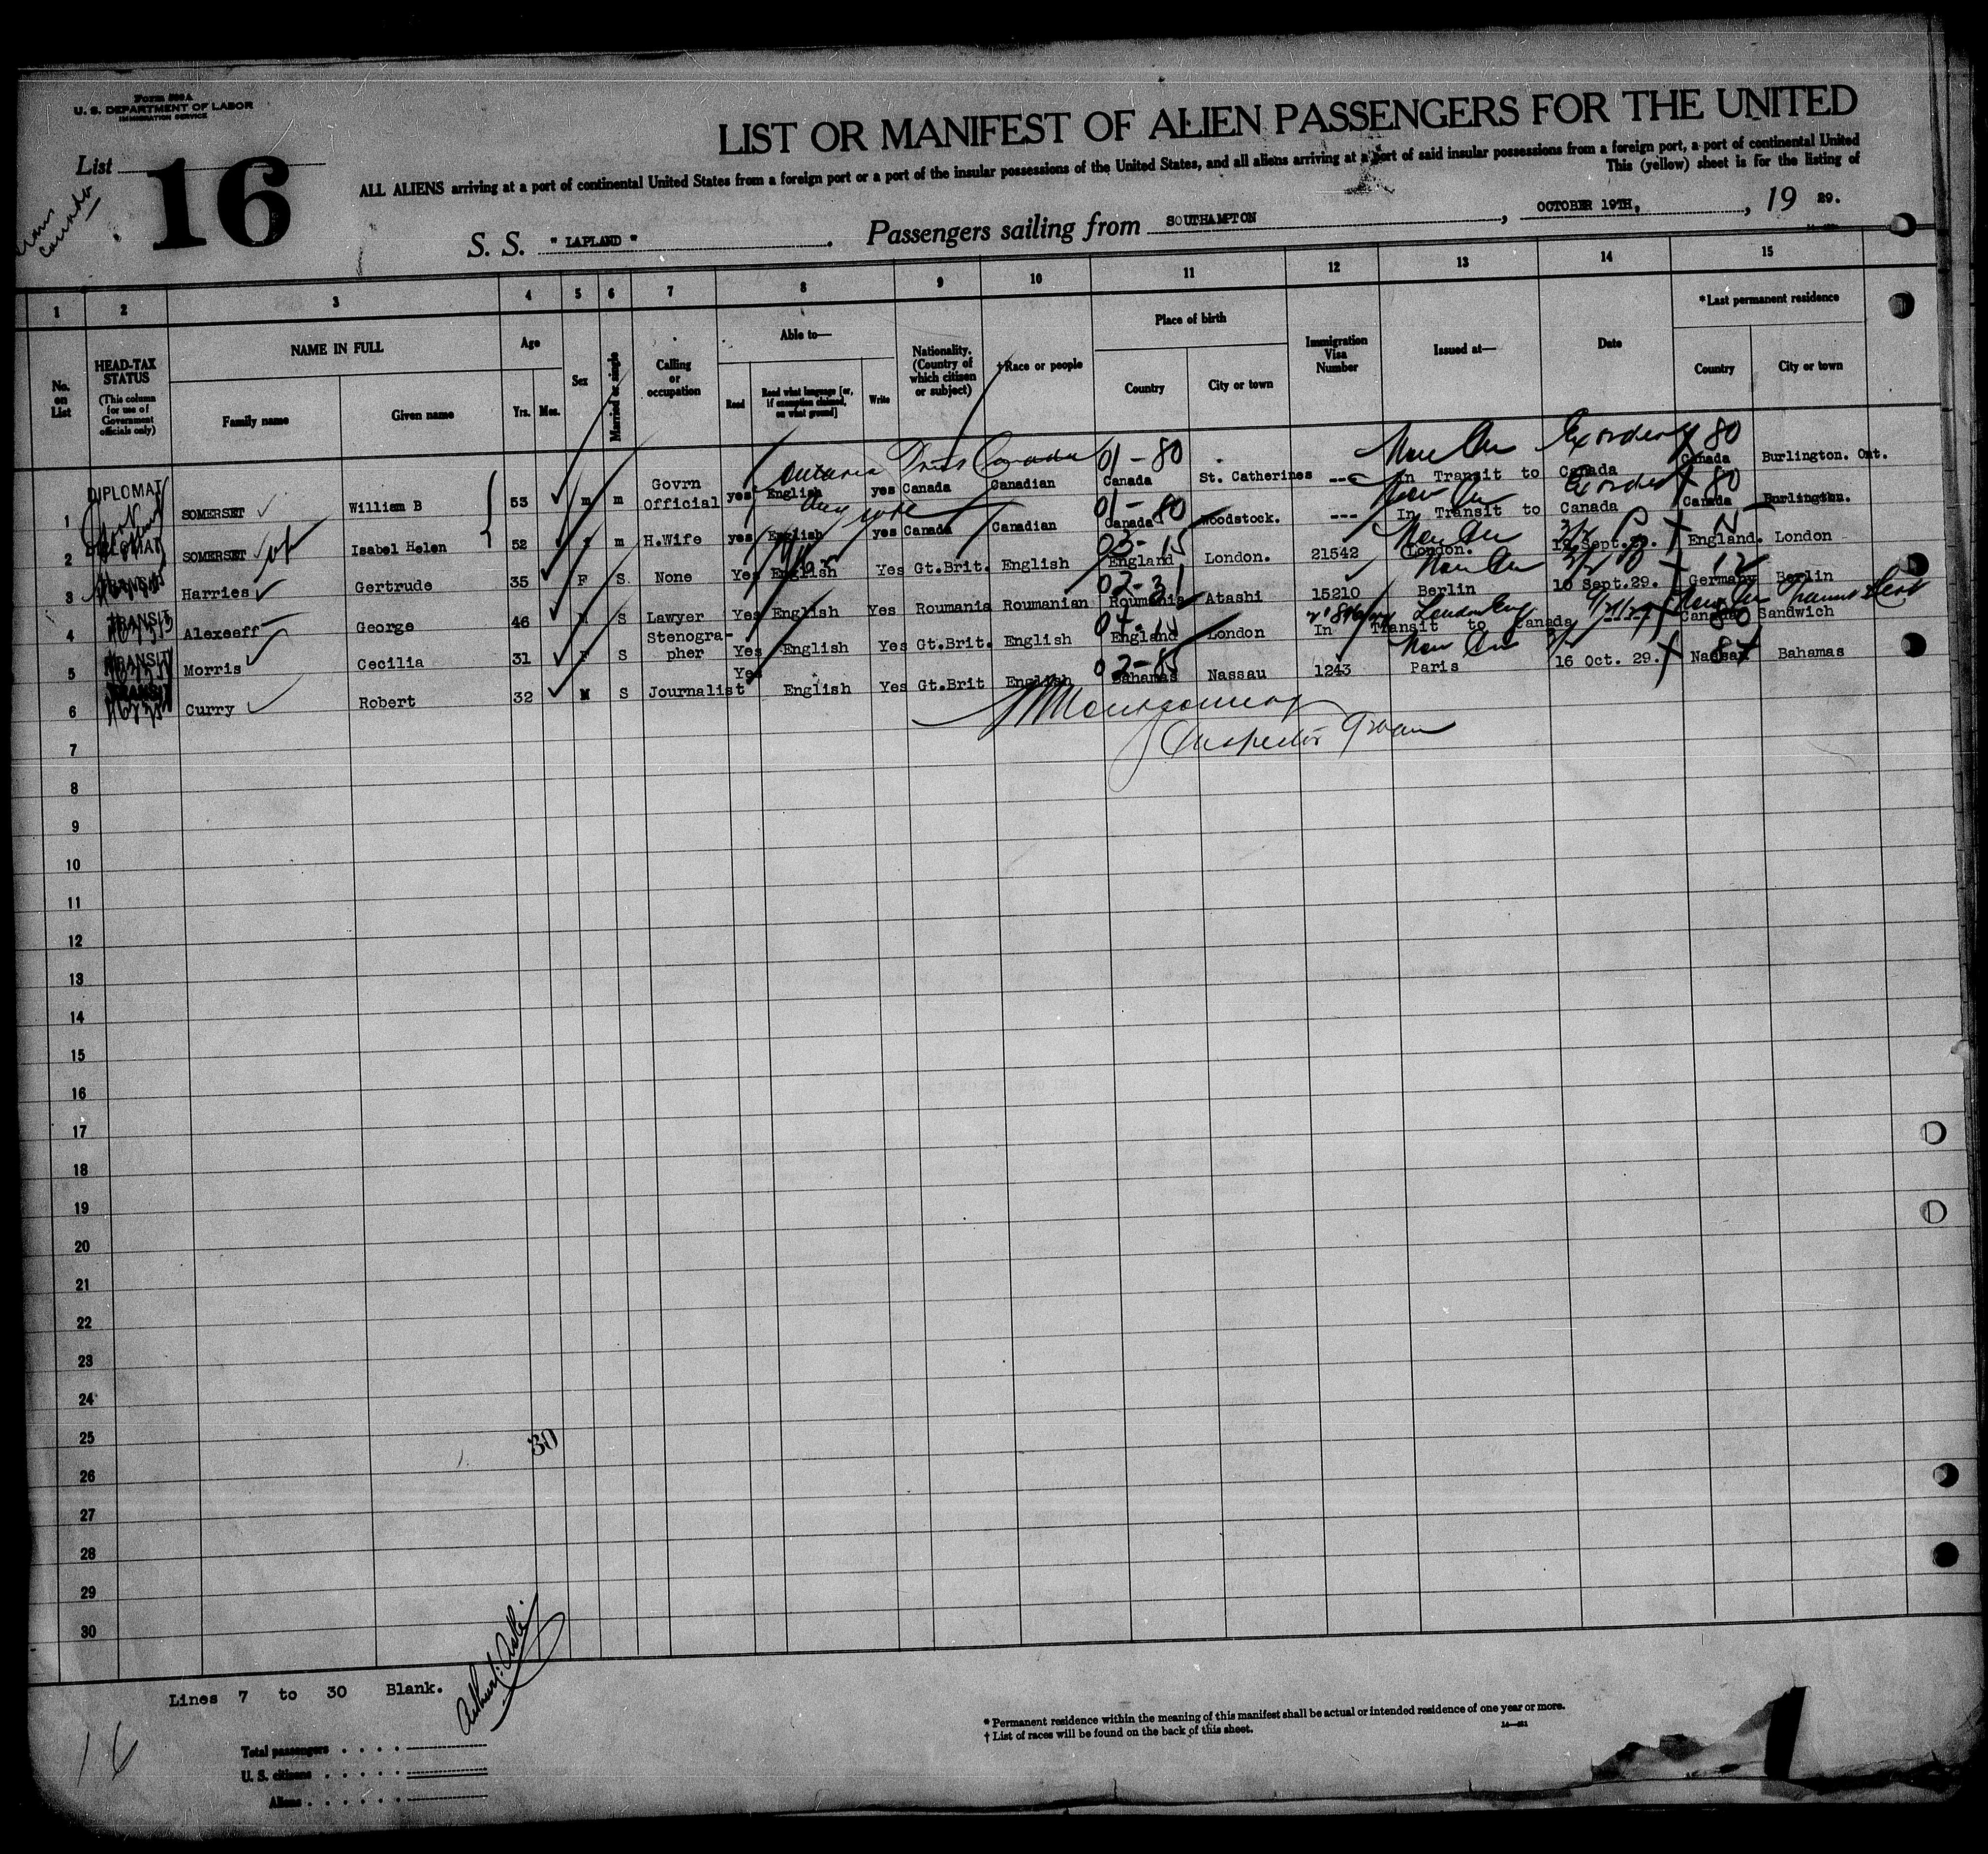 Form 500 A
U. S. DEPARTMENT OF LABOR
IMMIGRATION SERVICE
List 16
LIST OR MANIFEST OF ALIEN PASSENGERS FOR THE UNITED
ALL ALIENS arriving at a port of continental United States from a foreign port or a port of the insular possessions of the United States, and all aliens arriving at a port of said insular possessions from a foreign port, a port of continental United
This (yellow) sheet is for the listing of
S. S. " LAPLAND " . Passengers sailing from SOUTHAMPTON , OCTOBER 19TH, , 19 29.
1 2 3 4 5 6 7 8 9 10 11 12 13 14 15
No. on List
HEAD-TAX STATUS
(This column for use of Government officials only)
NAME IN FULL
Family name Given name
Age
Yrs. Mos.
Sex
Married or single
Calling or occupation
Able to—
Read Read what language [or, if exemption claimed, on what ground] Write
Nationality. (Country of which citizen or subject)
†Race or people
Place of birth
Country City or town
Immigration Visa Number
Issued at—
Date
*Last permanent residence
Country City or town
1 DIPLOMAT SOMERSET William B 53 m m Govrn Official yes English yes Canada Canadian 01-80 Canada St. Catherines --- In Transit to Canada 80 Canada Burlington. Ont.
2 DIPLOMAT SOMERSET Isabel Helen 52 m H.Wife yes English yes Canada Canadian 01-80 Canada Woodstock. --- In Transit to Canada 80 Canada Burlington.
3 Harries Gertrude 35 F S None Yes English Yes Gt.Brit. English 03-15 England London. 21542 London. Sept. England. London
4 TRANSIT Alexeeff George 46 M S Lawyer Yes English Yes Roumania Roumanian 02-31 Roumania Atashi 15210 Berlin 10 Sept.29. 12 Germany Berlin
5 TRANSIT Morris Cecilia 31 F S Stenogra-pher Yes English Yes Gt.Brit. English England London In Transit to Canada Canada Sandwich
6 TRANSIT Curry Robert 32 M S Journalist Yes English Yes Gt.Brit English 02-85 Bahamas Nassau 1243 Paris 16 Oct. 29. Nassau Bahamas
Montgomery
Inspector
7
8
9
10
11
12
13
14
15
16
17
18
19
20
21
22
23
24
25
30
26
27
28
29
30
Lines 7 to 30 Blank.
16
Total passengers
U. S. citizens
Aliens
* Permanent residence within the meaning of this manifest shall be actual or intended residence of one year or more.
† List of races will be found on the back of this sheet.